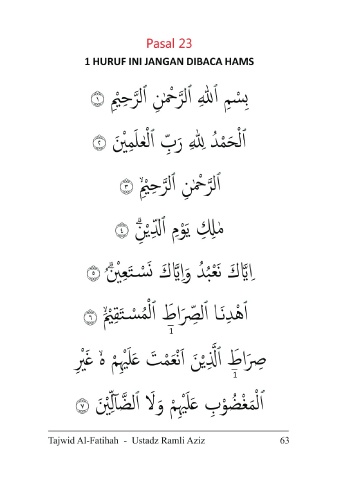 Pasal 23
1 HURUF INI JANGAN DIBACA HAMS
بِسْمِ اللهِ الرَّحْمٰنِ الرَّحِيْمِ ۝١
اَلْحَمْدُ لِلهِ رَبِّ الْعٰلَمِيْنَ ۝٢
الرَّحْمٰنِ الرَّحِيْمِۙ ۝٣
مٰلِكِ يَوْمِ الدِّيْنِۗ ۝٤
اِيَّاكَ نَعْبُدُ وَاِيَّاكَ نَسْتَعِيْنُۗ ۝٥
اِهْدِنَا الصِّرَاطَ الْمُسْتَقِيْمَۙ ۝٦
1
صِرَاطَ الَّذِيْنَ اَنْعَمْتَ عَلَيْهِمْ ەۙ غَيْرِ
1
الْمَغْضُوْبِ عَلَيْهِمْ وَلَا الضَّاۤلِّيْنَ ۝٧
Tajwid Al-Fatihah - Ustadz Ramli Aziz 63